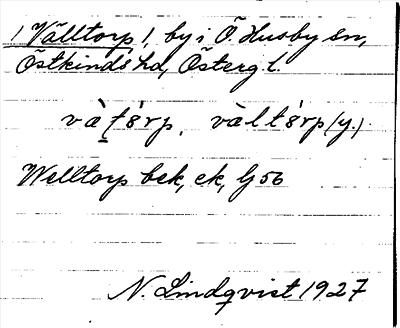 ! Välltorp !, by i Ö. Husby sn,
Östkinds hd, Östergl.
vàltörp, vàltörp (y.)
Welltorp bek, ek, Gs 56
N. Lindqvist 1927